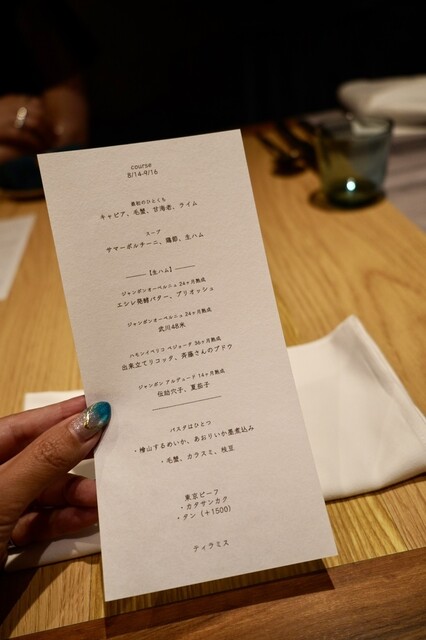 course
8/14-9/16
最初のひとくち
キャビア、毛蟹、甘海老、ライム
スープ
サマーポルチーニ、鶏節、生ハム
【生ハム】
ジャンボンオーベルニュ 24ヶ月熟成
エシレ発酵バター、ブリオッシュ
ジャンボンオーベルニュ 24ヶ月熟成
武川48米
ハモンイベリコ ベジョータ 36ヶ月熟成
出来立てリコッタ、斉藤さんのブドウ
ジャンボン アルデュード 14ヶ月熟成
伝助穴子、夏茄子
パスタはひとつ
・檜山するめいか、あおりいか墨煮込み
・毛蟹、カラスミ、枝豆
東京ビーフ
・カタサンカク
・タン（＋1500）
ティラミス